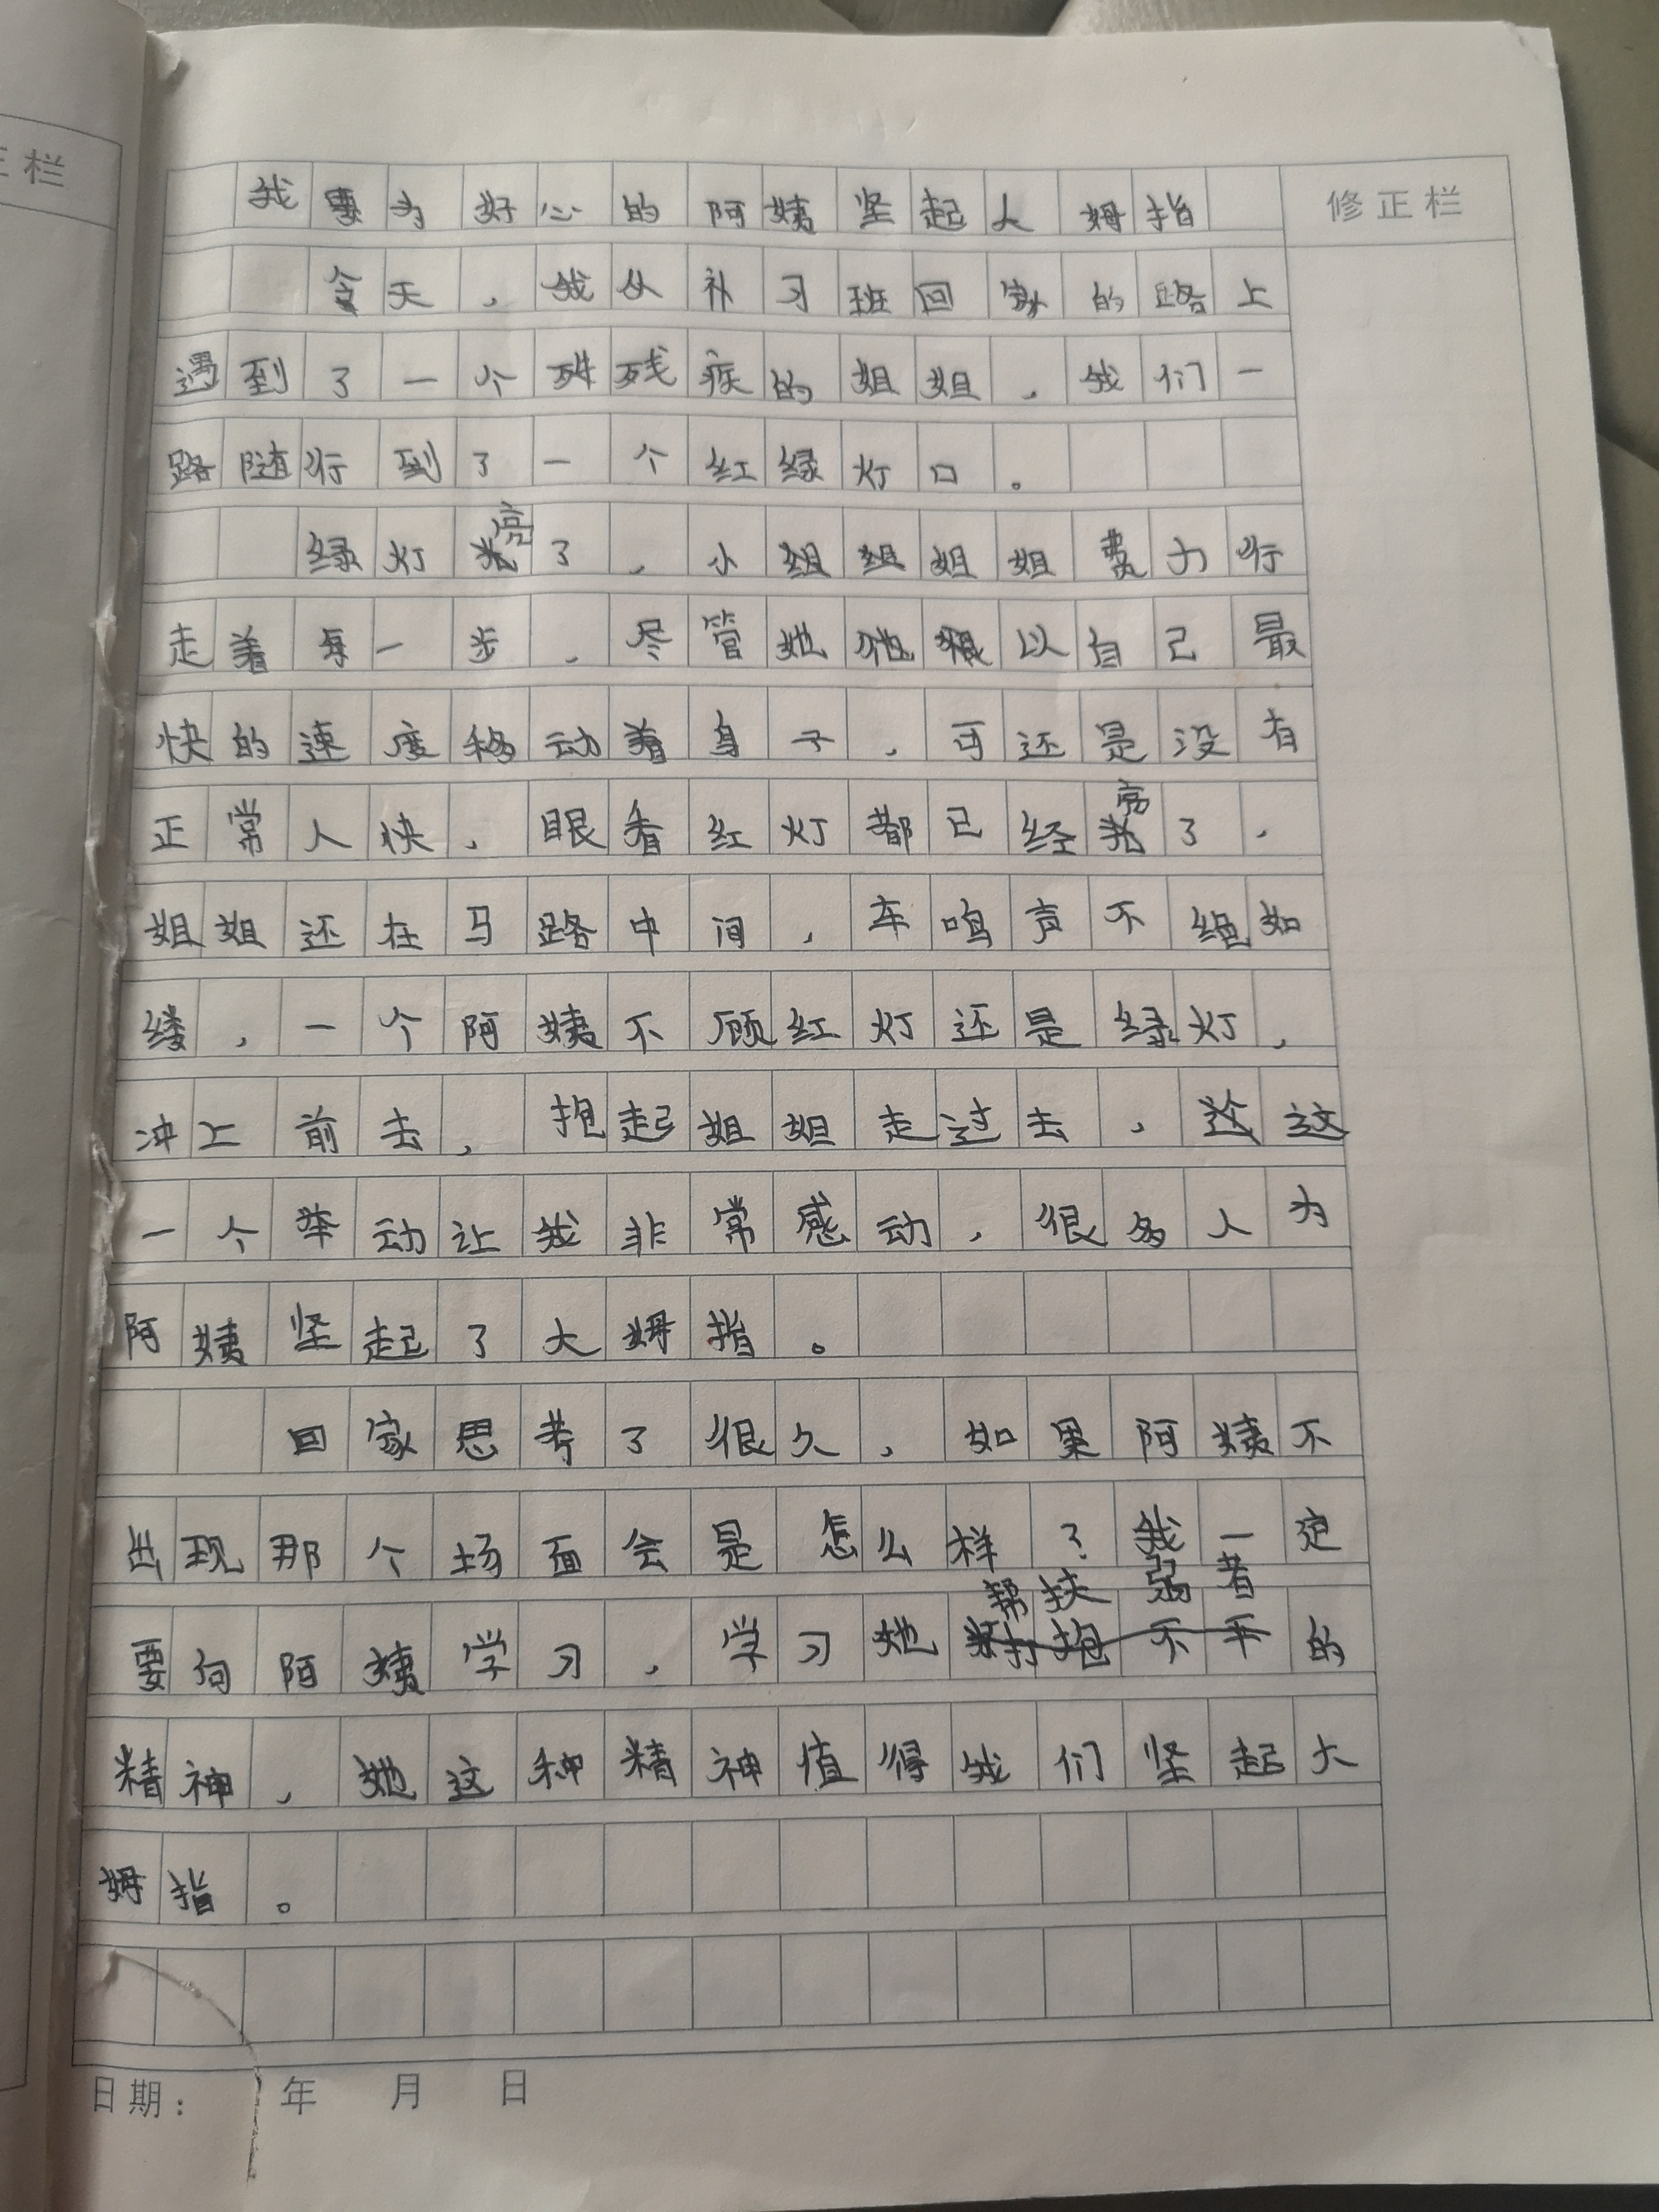 正栏
修正栏
我要为好心的阿姨坚起大姆指
今天,我从补习班回家的路上
遇到了一个残疾的姐姐,我们一
路随行到了一个红绿灯口。
绿灯亮了,小姐姐费力行
走着每一步,尽管她以自己最
快的速度移动着身子,可还是没有
正常人快,眼看红灯都已经亮了,
姐姐还在马路中间,车鸣声不绝如
缕,一个阿姨不顾红灯还是绿灯,
冲上前去,抱起姐姐走过去,这
一个举动让我非常感动,很多人为
阿姨坚起了大姆指。
回家思考了很久,如果阿姨不
出现那个场面会是怎么样?我一定
要向阿姨学习,学习她帮扶弱者的
精神,她这种精神值得我们坚起大
姆指。
日期: 年 月 日